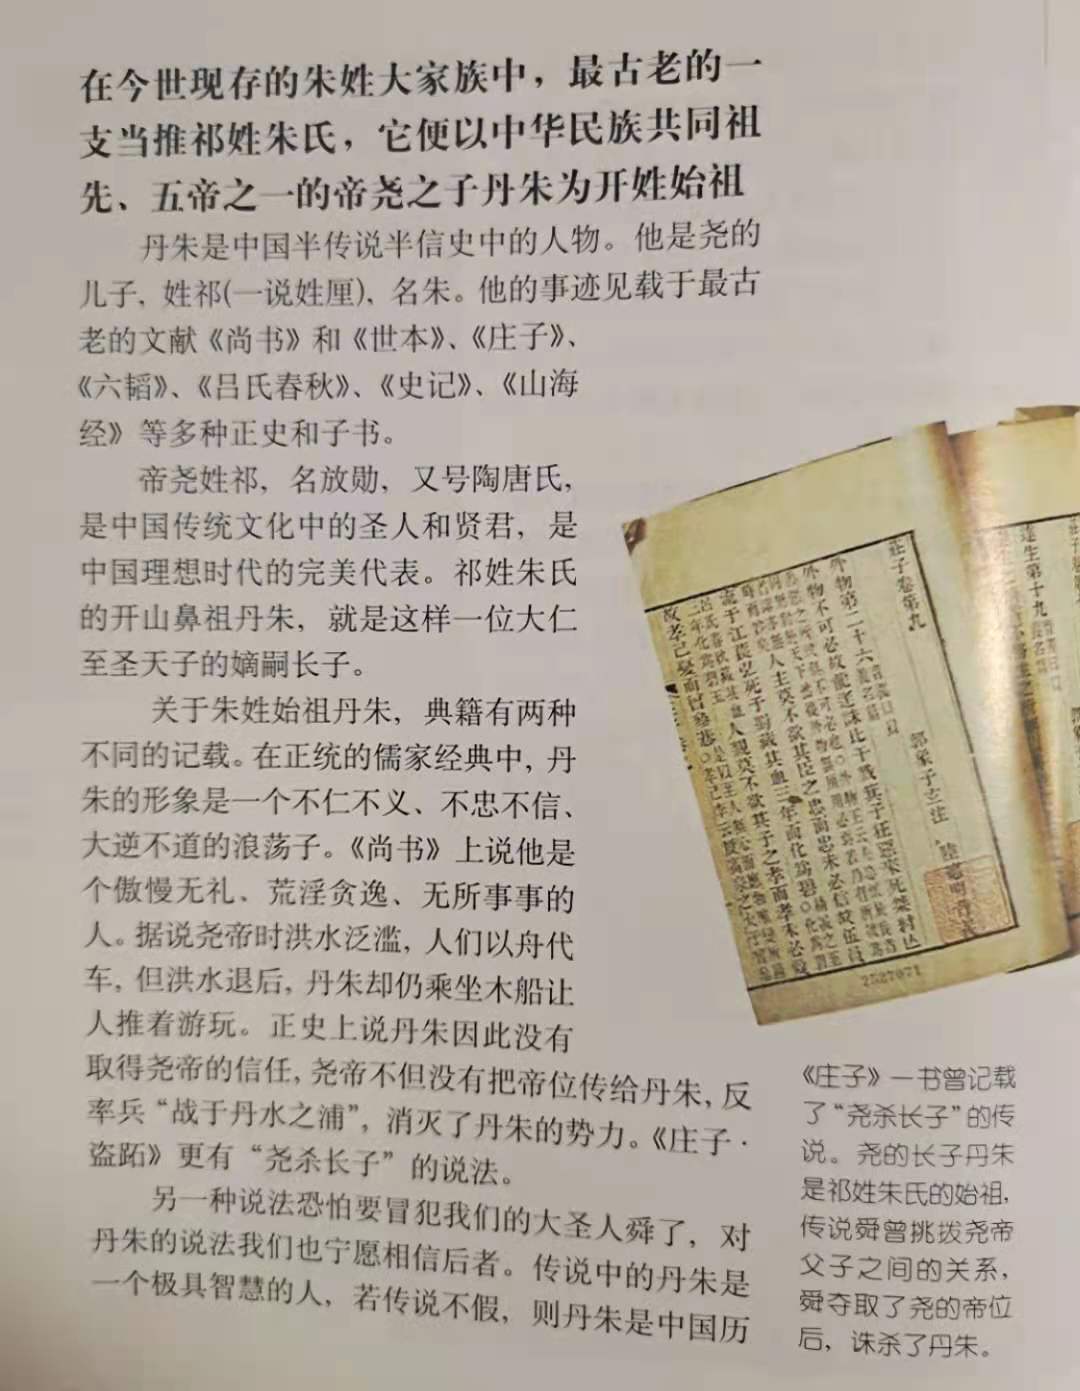 在今世现存的朱姓大家族中，最古老的一
支当推祁姓朱氏，它便以中华民族共同祖
先、五帝之一的帝尧之子丹朱为开姓始祖
丹朱是中国半传说半信史中的人物。他是尧的
儿子，姓祁(一说姓厘)，名朱。他的事迹见载于最古
老的文献《尚书》和《世本》、《庄子》、
《六韬》、《吕氏春秋》、《史记》、《山海
经》等多种正史和子书。
帝尧姓祁，名放勋，又号陶唐氏，
是中国传统文化中的圣人和贤君，是
中国理想时代的完美代表。祁姓朱氏
的开山鼻祖丹朱，就是这样一位大仁
至圣天子的嫡嗣长子。
关于朱姓始祖丹朱，典籍有两种
不同的记载。在正统的儒家经典中，丹
朱的形象是一个不仁不义、不忠不信、
大逆不道的浪荡子。《尚书》上说他是
个傲慢无礼、荒淫贪逸、无所事事的
人。据说尧帝时洪水泛滥，人们以舟代
车，但洪水退后，丹朱却仍乘坐木船让
人推着游玩。正史上说丹朱因此没有
取得尧帝的信任，尧帝不但没有把帝位传给丹朱，反
率兵“战于丹水之浦”，消灭了丹朱的势力。《庄子·
盗跖》更有“尧杀长子”的说法。
另一种说法恐怕要冒犯我们的大圣人舜了，对
丹朱的说法我们也宁愿相信后者。传说中的丹朱是
一个极具智慧的人，若传说不假，则丹朱是中国历
莊子卷第九
外物第二十六
郭象子玄注
陸德明音義
外物不可必故龍逄誅比干戮箕子狂惡來死桀紂亡
人主莫不欲其臣之忠而忠未必信故伍員
流于江萇弘死于蜀藏其血三年而化爲碧
人親莫不欲其子之孝而孝未必愛
故孝己憂而曾參悲
達生第十九
2527071
《庄子》一书曾记载
了“尧杀长子”的传
说。尧的长子丹朱
是祁姓朱氏的始祖，
传说舜曾挑拨尧帝
父子之间的关系，
舜夺取了尧的帝位
后，诛杀了丹朱。